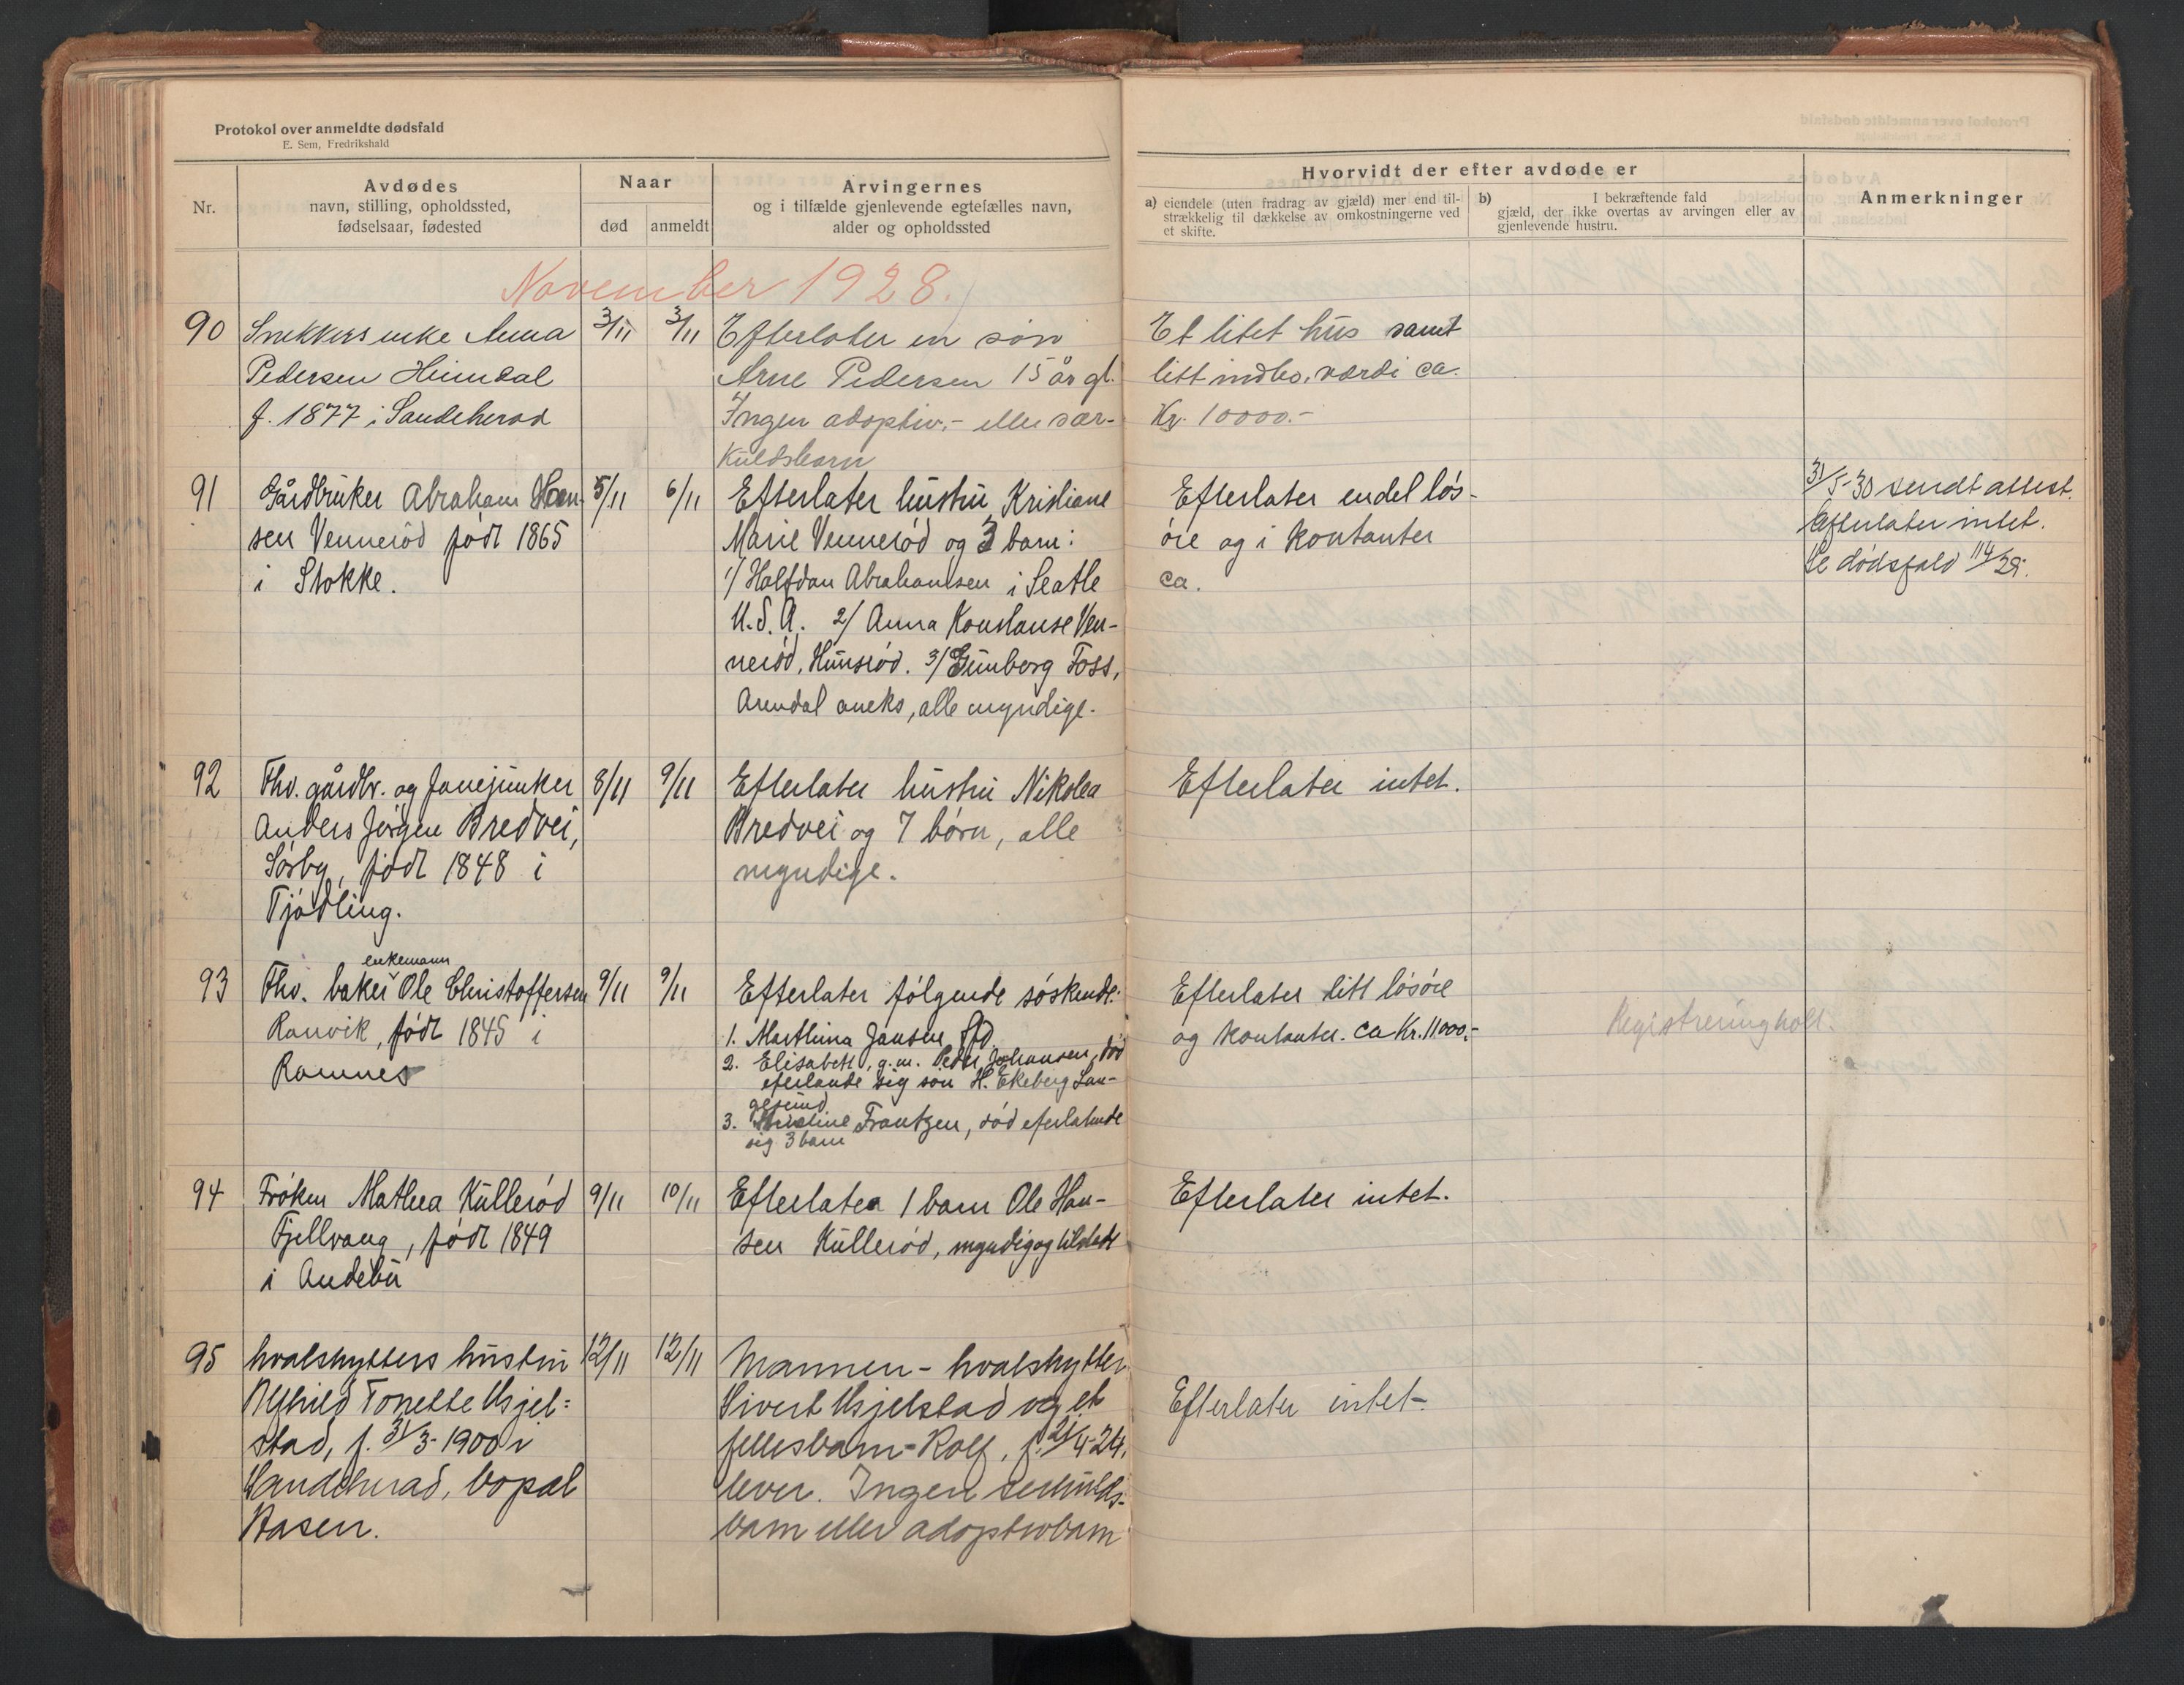 Protokol over anmeldte dødsfald
E. Sem, Fredrikshald
Nr.
Avdødes
navn, stilling, opholdssted,
fødselsaar, fødested
Naar
død
anmeldt
Arvingernes
og i tilfælde gjenlevende egtefælles navn,
alder og opholdssted
Hvorvidt der efter avdøde er
a) eiendele (uten fradrag av gjæld) mer end til-
strækkelig til dækkelse av omkostningerne ved
et skifte.
b) I bekræftende fald
gjæld, der ikke overtas av arvingen eller av
gjenlevende hustru.
Anmerkninger
November 1928.
90
Snekkers enke Anna
Pedersen Heimdal
f. 1877 i Sandeherad
3/11
3/11
Efterlater en søn
Arne Pedersen 15 år gl.
Ingen adoptiv- eller sær-
kuldsbarn
Et litet hus samt
litt indbo, værdi ca.
Kr. 10000.-
91
Gårdbruker Abraham Han-
sen Vennerød født 1865
i Stokke.
5/11
6/11
Efterlater hustru Kristiane
Marie Vennerød og 3 barn:
1/ Halfdan Abrahamsen i Seatle
U.S.A. 2/ Anna Konstanse Ven-
nerød, Hunsrød. 3/ Gunborg Foss,
Arendal aneks, alle myndige.
Efterlater endel løs-
øre og i kontanter
ca.
31/5-30 sendt attest.
Efterlater intet.
Se dødsfald 114/29.
92
Fhv. gårdbr. og fanejunker
Anders Jørgen Bredvei,
Sørby, født 1848 i
Tjødling.
8/11
9/11
Efterlater hustru Nikolea
Bredvei og 7 børn, alle
myndige.
Efterlater intet.
93
enkemann
Fhv. baker Ole Christoffersen
Ranvik, født 1845 i
Ramnes
9/11
9/11
Efterlater følgende søskende:
1. Marthina Jansen,
2. Elisabeth, g.m. Peder Johansen, død
efterlante sig søn H. Ekeberg Lan-
gesund
3. Kristine Frantzen, død efterlatende
sig 3 barn
Efterlater litt løsøre
og kontanter. ca Kr. 11000.-
Registrering holt.
94
Frøken Mathea Kullerød
Fjellvang, født 1849
i Andebu
9/11
10/11
Efterlater 1 barn Ole Han-
sen Kullerød, myndig og tilstede
Efterlater intet.
95
hvalskytters hustru
Alfhild Tonette Gjel=
stad, f. 31/3-1900 i
Sandeherad, bopæl
Haasen.
12/11
12/11
Mannen - hvalskytter
Sivert Gjelstad og et
fellesbarn - Rolf, f. 21/4-24,
lever. Ingen serkulds-
barn eller adoptivbarn
Efterlater intet-